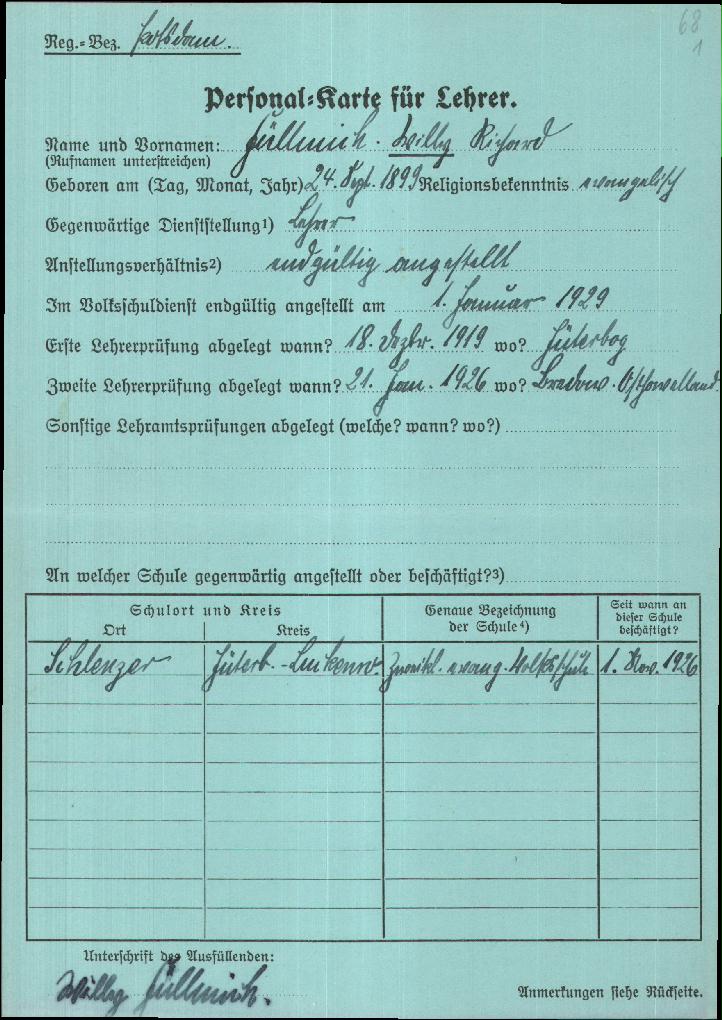 68
1
Reg.-Bez. Potsdam.
Personal-Karte für Lehrer.
Name und Vornamen: Füllmich. Willy Richard
(Rufnamen unterstreichen)
Geboren am (Tag, Monat, Jahr) 24. Sept. 1899 Religionsbekenntnis evangelisch
Gegenwärtige Dienststellung¹) Lehrer
Anstellungsverhältnis²) endgültig angestellt
Im Volksschuldienst endgültig angestellt am 1. Januar 1929
Erste Lehrerprüfung abgelegt wann? 18. Dezbr. 1919 wo? Jüterbog
Zweite Lehrerprüfung abgelegt wann? 21. Jan. 1926 wo? Bredow. Osthavelland.
Sonstige Lehramtsprüfungen abgelegt (welche? wann? wo?)
An welcher Schule gegenwärtig angestellt oder beschäftigt?³)
Schulort und Kreis
Ort
Kreis
Genaue Bezeichnung
der Schule⁴)
Seit wann an
dieser Schule
beschäftigt?
Schlenzer Jüterb.-Luckenw. Zweikl. evang. Volksschule 1. Nov. 1926
Unterschrift des Ausfüllenden:
Willy Füllmich.
Anmerkungen siehe Rückseite.